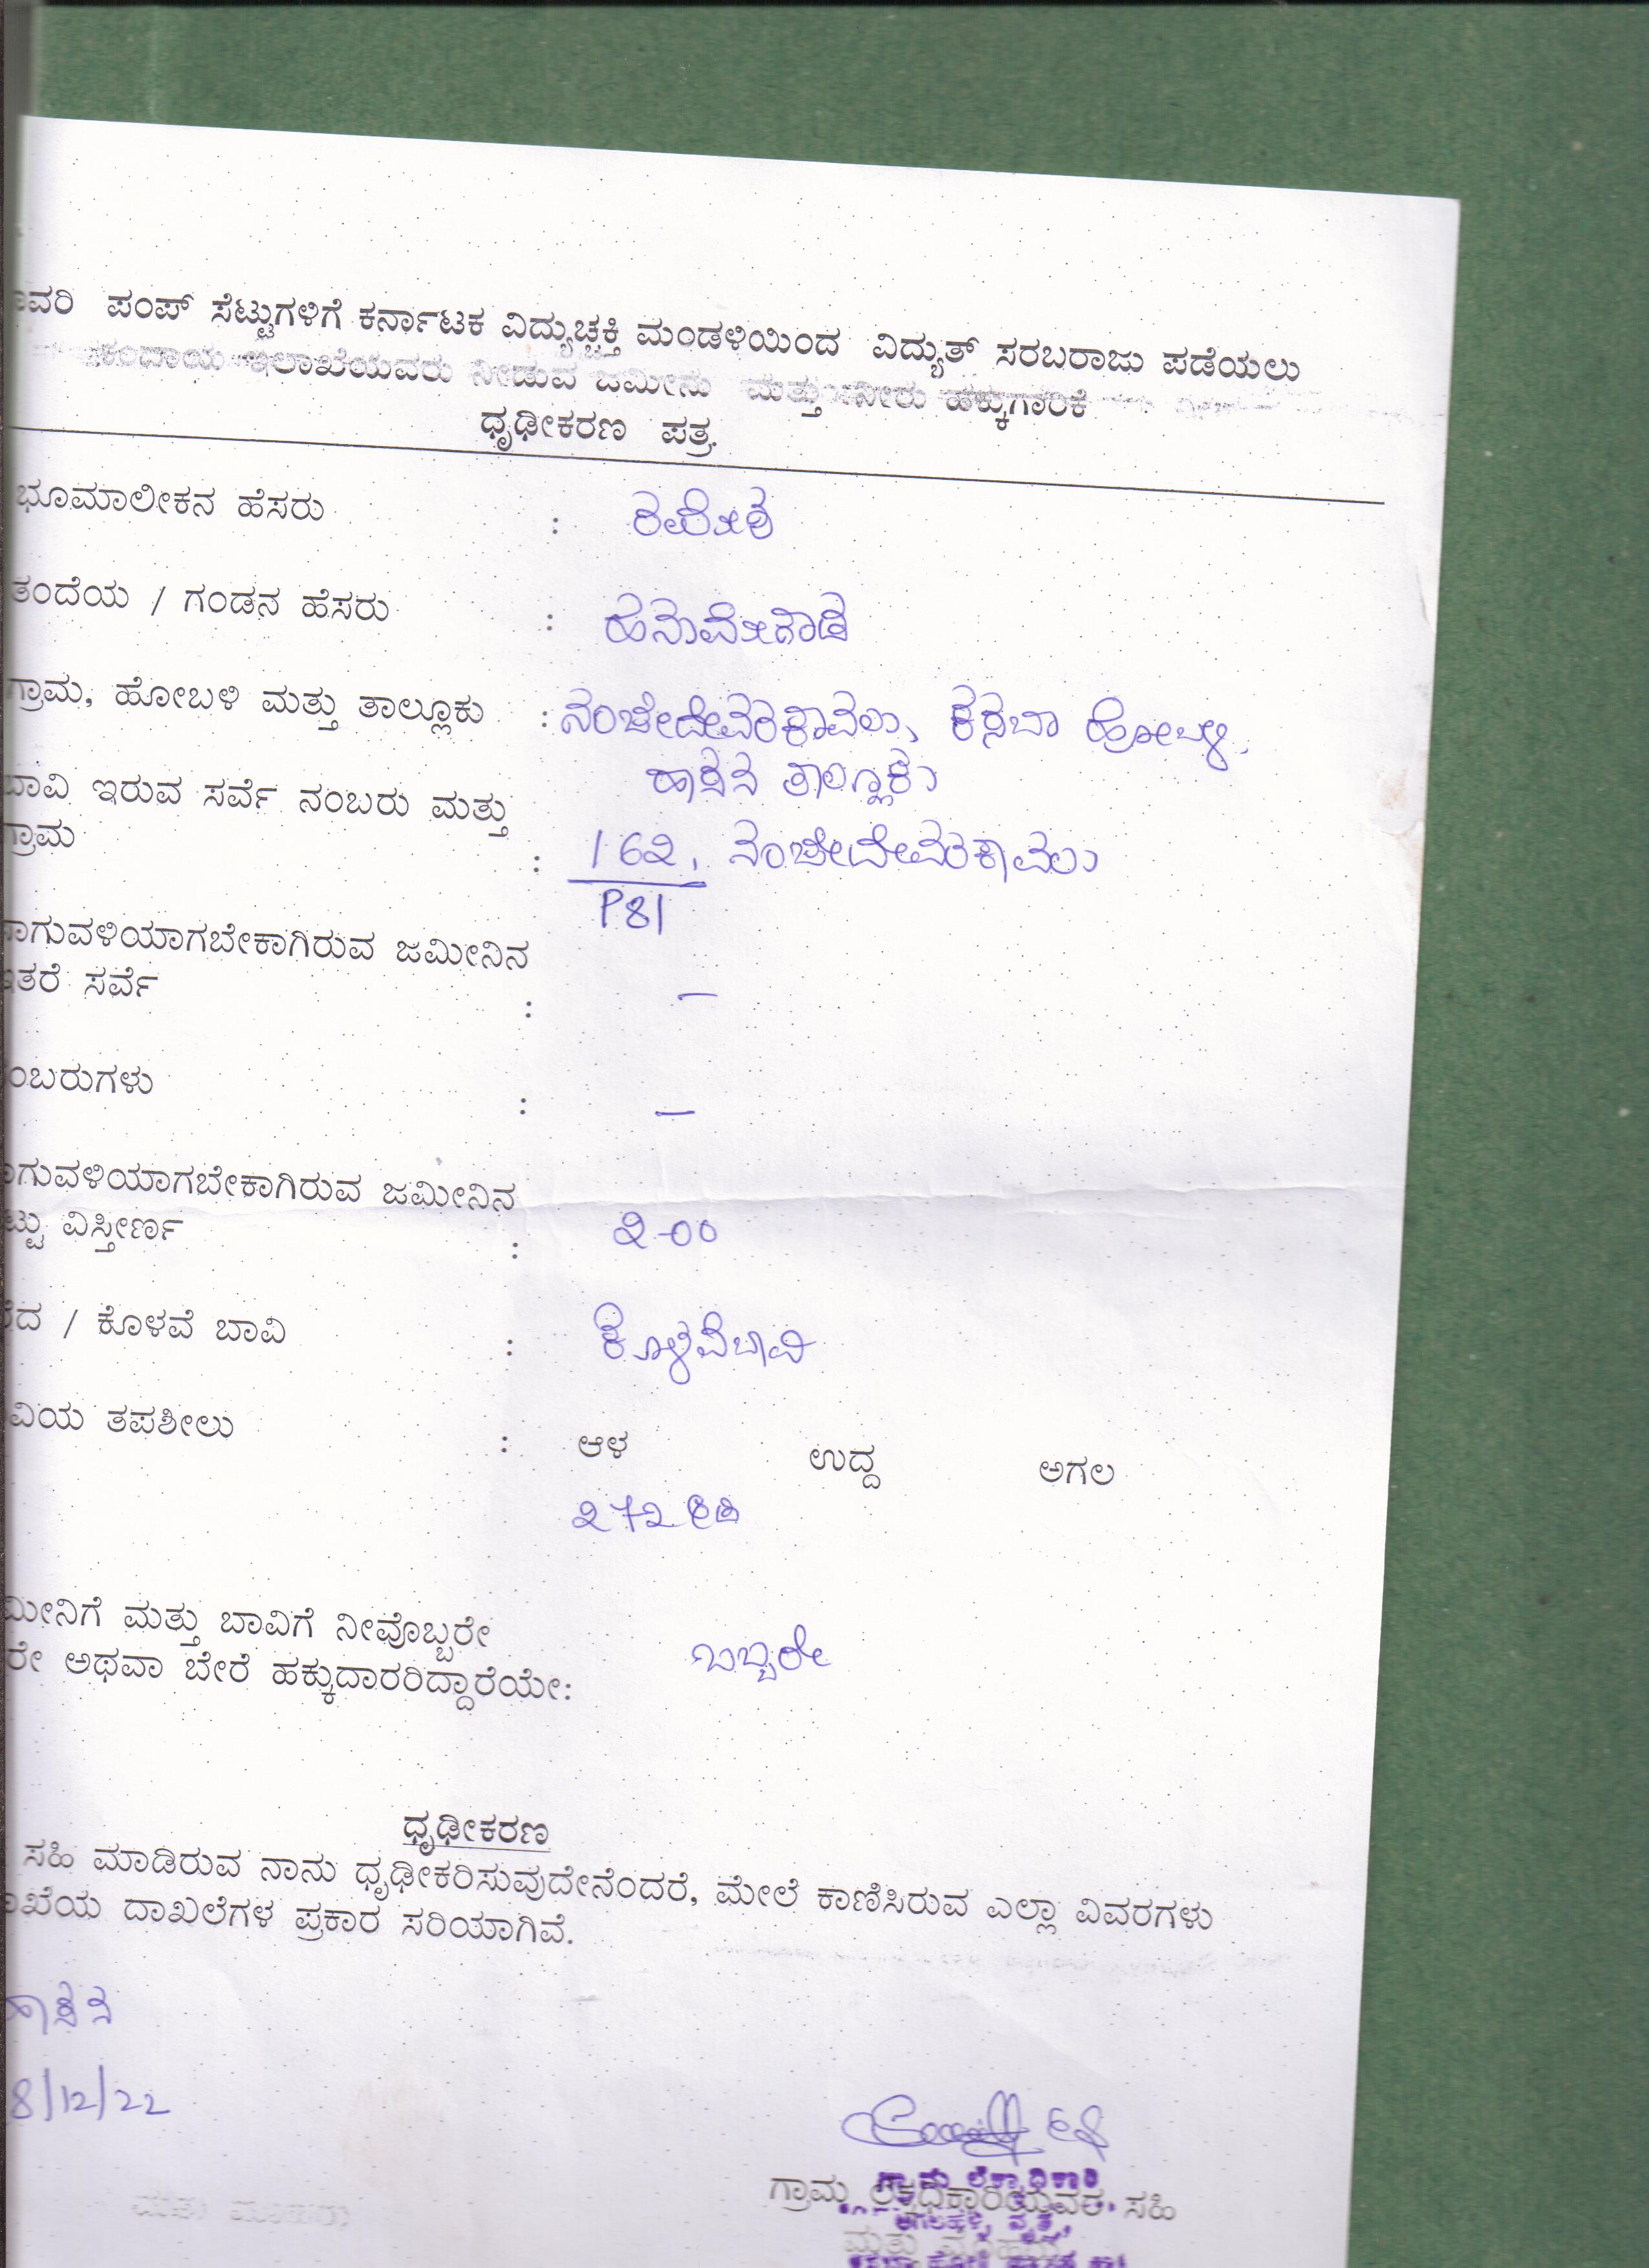 ಪಂಪ್ ಸೆಟ್ಟುಗಳಿಗೆ ಕರ್ನಾಟಕ ವಿದ್ಯುಚ್ಛಕ್ತಿ ಮಂಡಳಿಯಿಂದ ವಿದ್ಯುತ್ ಸರಬರಾಜು ಪಡೆಯಲು
ಕಂದಾಯ ಇಲಾಖೆಯವರು ನೀಡುವ ಜಮೀನು ಮತ್ತು ನೀರು ಹಕ್ಕುಗಾರಿಕೆ
ಧೃಢೀಕರಣ ಪತ್ರ.
ಭೂಮಾಲೀಕನ ಹೆಸರು :
ತಂದೆಯ / ಗಂಡನ ಹೆಸರು :
ಗ್ರಾಮ, ಹೋಬಳಿ ಮತ್ತು ತಾಲ್ಲೂಕು : ನಂಜೇದೇವರಕಾವಲು, ಕಸಬಾ ಹೋಬಳಿ,
ಹಾಸನ ತಾಲ್ಲೂಕು
ಬಾವಿ ಇರುವ ಸರ್ವೆ ನಂಬರು ಮತ್ತು
ಗ್ರಾಮ : 162, ನಂಜೇದೇವರಕಾವಲು
P81
ಸಾಗುವಳಿಯಾಗಬೇಕಾಗಿರುವ ಜಮೀನಿನ
ಇತರೆ ಸರ್ವೆ : —
ನಂಬರುಗಳು : —
ಸಾಗುವಳಿಯಾಗಬೇಕಾಗಿರುವ ಜಮೀನಿನ
ಟ್ಟು ವಿಸ್ತೀರ್ಣ : 2-00
/ ಕೊಳವೆ ಬಾವಿ : ಕೊಳವೆಬಾವಿ
ವಿಯ ತಪಶೀಲು : ಆಳ ಉದ್ದ ಅಗಲ
272 ಅಡಿ
ಮೀನಿಗೆ ಮತ್ತು ಬಾವಿಗೆ ನೀವೊಬ್ಬರೇ
ರೇ ಅಥವಾ ಬೇರೆ ಹಕ್ಕುದಾರರಿದ್ದಾರೆಯೇ: ಒಬ್ಬರೇ
ಧೃಢೀಕರಣ
ಸಹಿ ಮಾಡಿರುವ ನಾನು ಧೃಢೀಕರಿಸುವುದೇನೆಂದರೆ, ಮೇಲೆ ಕಾಣಿಸಿರುವ ಎಲ್ಲಾ ವಿವರಗಳು
ಾಖೆಯ ದಾಖಲೆಗಳ ಪ್ರಕಾರ ಸರಿಯಾಗಿವೆ.
ಹಾಸನ
8/12/22
ಗ್ರಾಮ ಲೆಕ್ಕಾಧಿಕಾರಿ
ಗ್ರಾಮ ಲೆಕ್ಕಾಧಿಕಾರಿಯವರ ಸಹಿ